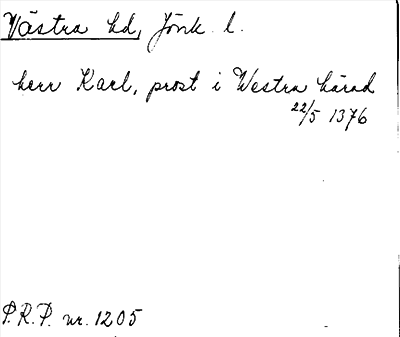 Västra hd, Jönk. l.
herr Karl, prost i Westra härad
22/5 1376
P.R.P. nr. 1205